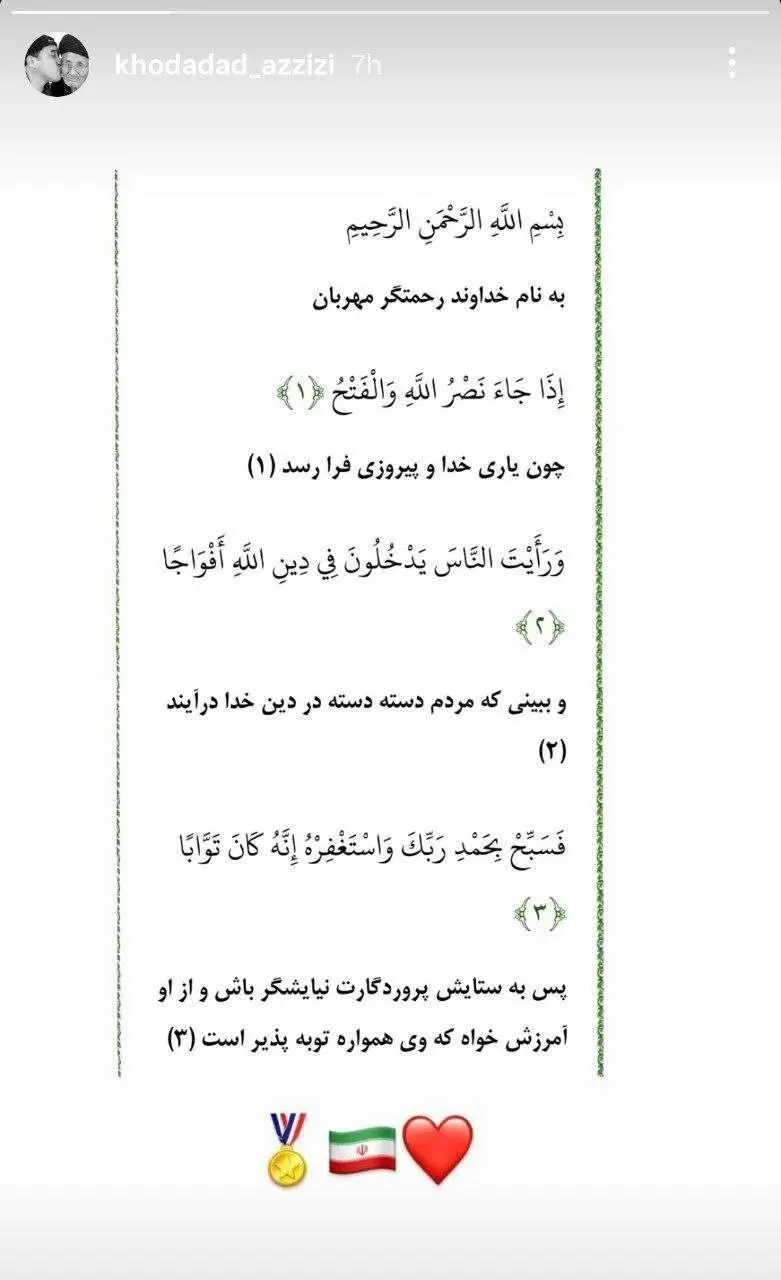 khodadad_azzizi 7h
بِسْمِ اللَّهِ الرَّحْمَنِ الرَّحِيمِ
به نام خداوند رحمتگر مهربان
إِذَا جَاءَ نَصْرُ اللَّهِ وَالْفَتْحُ ﴿۱﴾
چون یاری خدا و پیروزی فرا رسد (۱)
وَرَأَيْتَ النَّاسَ يَدْخُلُونَ فِي دِينِ اللَّهِ أَفْوَاجًا
﴿۲﴾
و ببینی که مردم دسته دسته در دین خدا درآیند
(۲)
فَسَبِّحْ بِحَمْدِ رَبِّكَ وَاسْتَغْفِرْهُ إِنَّهُ كَانَ تَوَّابًا
﴿۳﴾
پس به ستایش پروردگارت نیایشگر باش و از او
آمرزش خواه که وی همواره توبه پذیر است (۳)